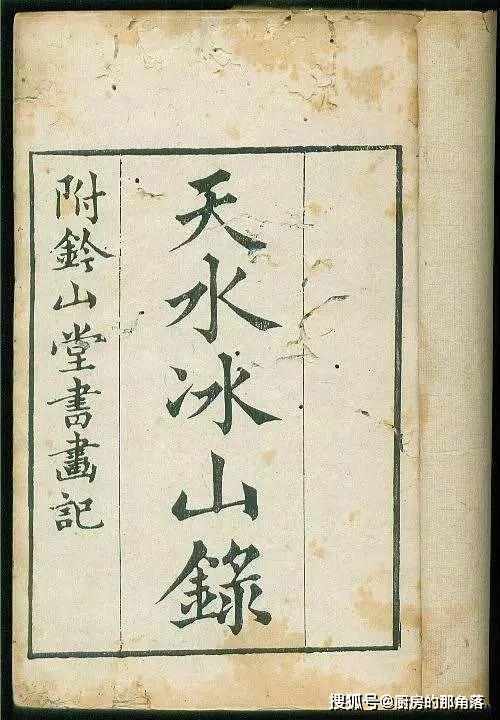 天水冰山錄
附鈐山堂書畫記
搜狐号@厨房的那角落